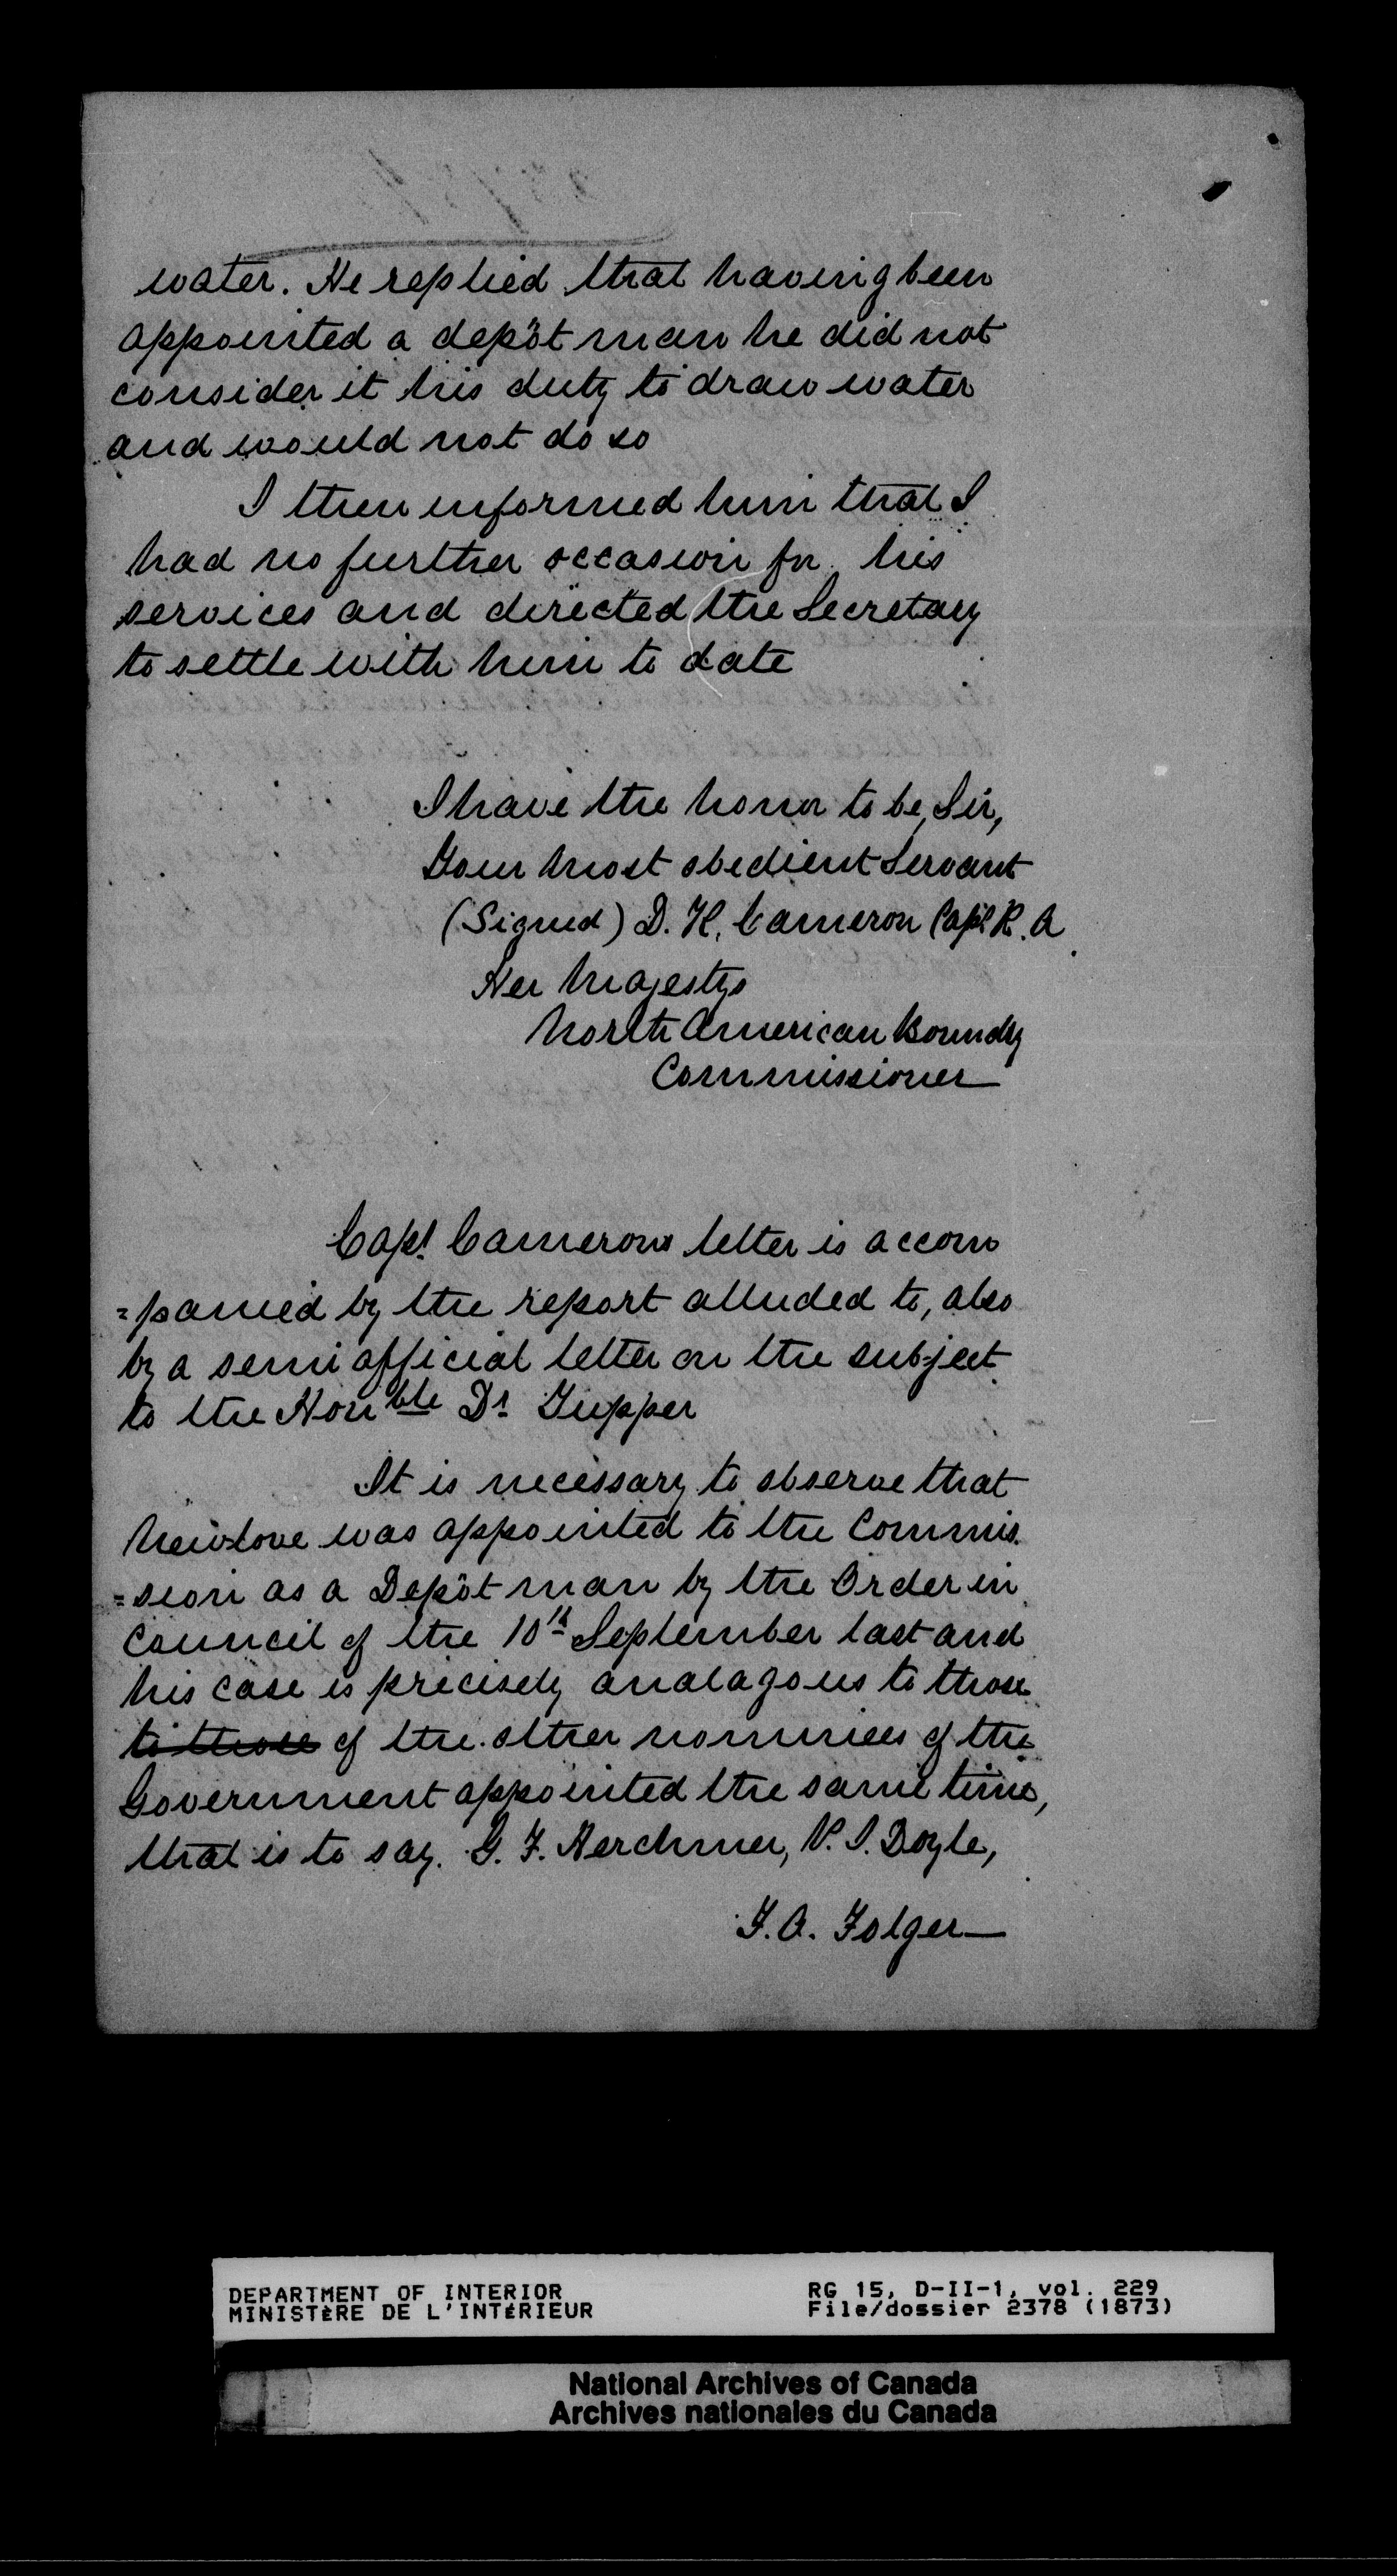 water. He replied that having been
appointed a depôt man he did not
consider it his duty to draw water
and would not do so
I then informed him that I
had no further occasion for his
services and directed the Secretary
to settle with him to date
I have the honor to be, Sir,
Your most obedient Servant
(Signed) D. R. Cameron Capt R. A
Her Majestys
North American Boundy
Commissioner
Capt. Camerons letter is accom
=panied by the report alluded to, also
by a semi official letter on the subject
to the Honble Dr. Tupper
It is necessary to observe that
Newlove was appointed to the Commis
=sion as a Depôt man by the Order in
Council of the 10th September last and
his case is precisely analagous to those
to those of the other nominees of the
Government appointed the same time,
that is to say. G. F. Herchmer, V. S. Doyle,
F. A. Folger
DEPARTMENT OF INTERIOR RG 15, D-II-1, vol. 229
MINISTÈRE DE L'INTÉRIEUR File/dossier 2378 (1873)
National Archives of Canada
Archives nationales du Canada